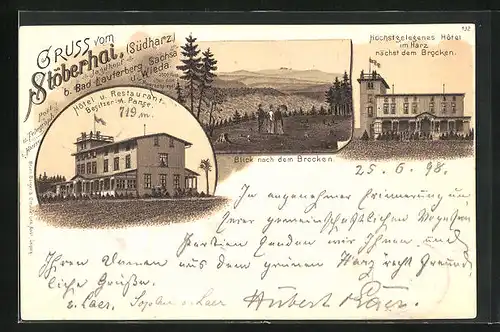 GRUSS vom
Stöberhai, (Südharz)
b. Bad Lauterberg, Sachsa
u. Wieda.
Hôtel u. Restaurant
Besitzer: M. Pange.
719 m.
Blick nach dem Brocken.
Höchstgelegenes Hôtel
im Harz
nächst dem Brocken.
25. 6. 98.
In angenehmer Erinnerung un-
serer gemeinschaftlichen
Partien senden wir Ihnen und
Ihren Damen aus dem grünen Harz recht freund-
liche Grüße.
v. Laer. Sophie v. Laer